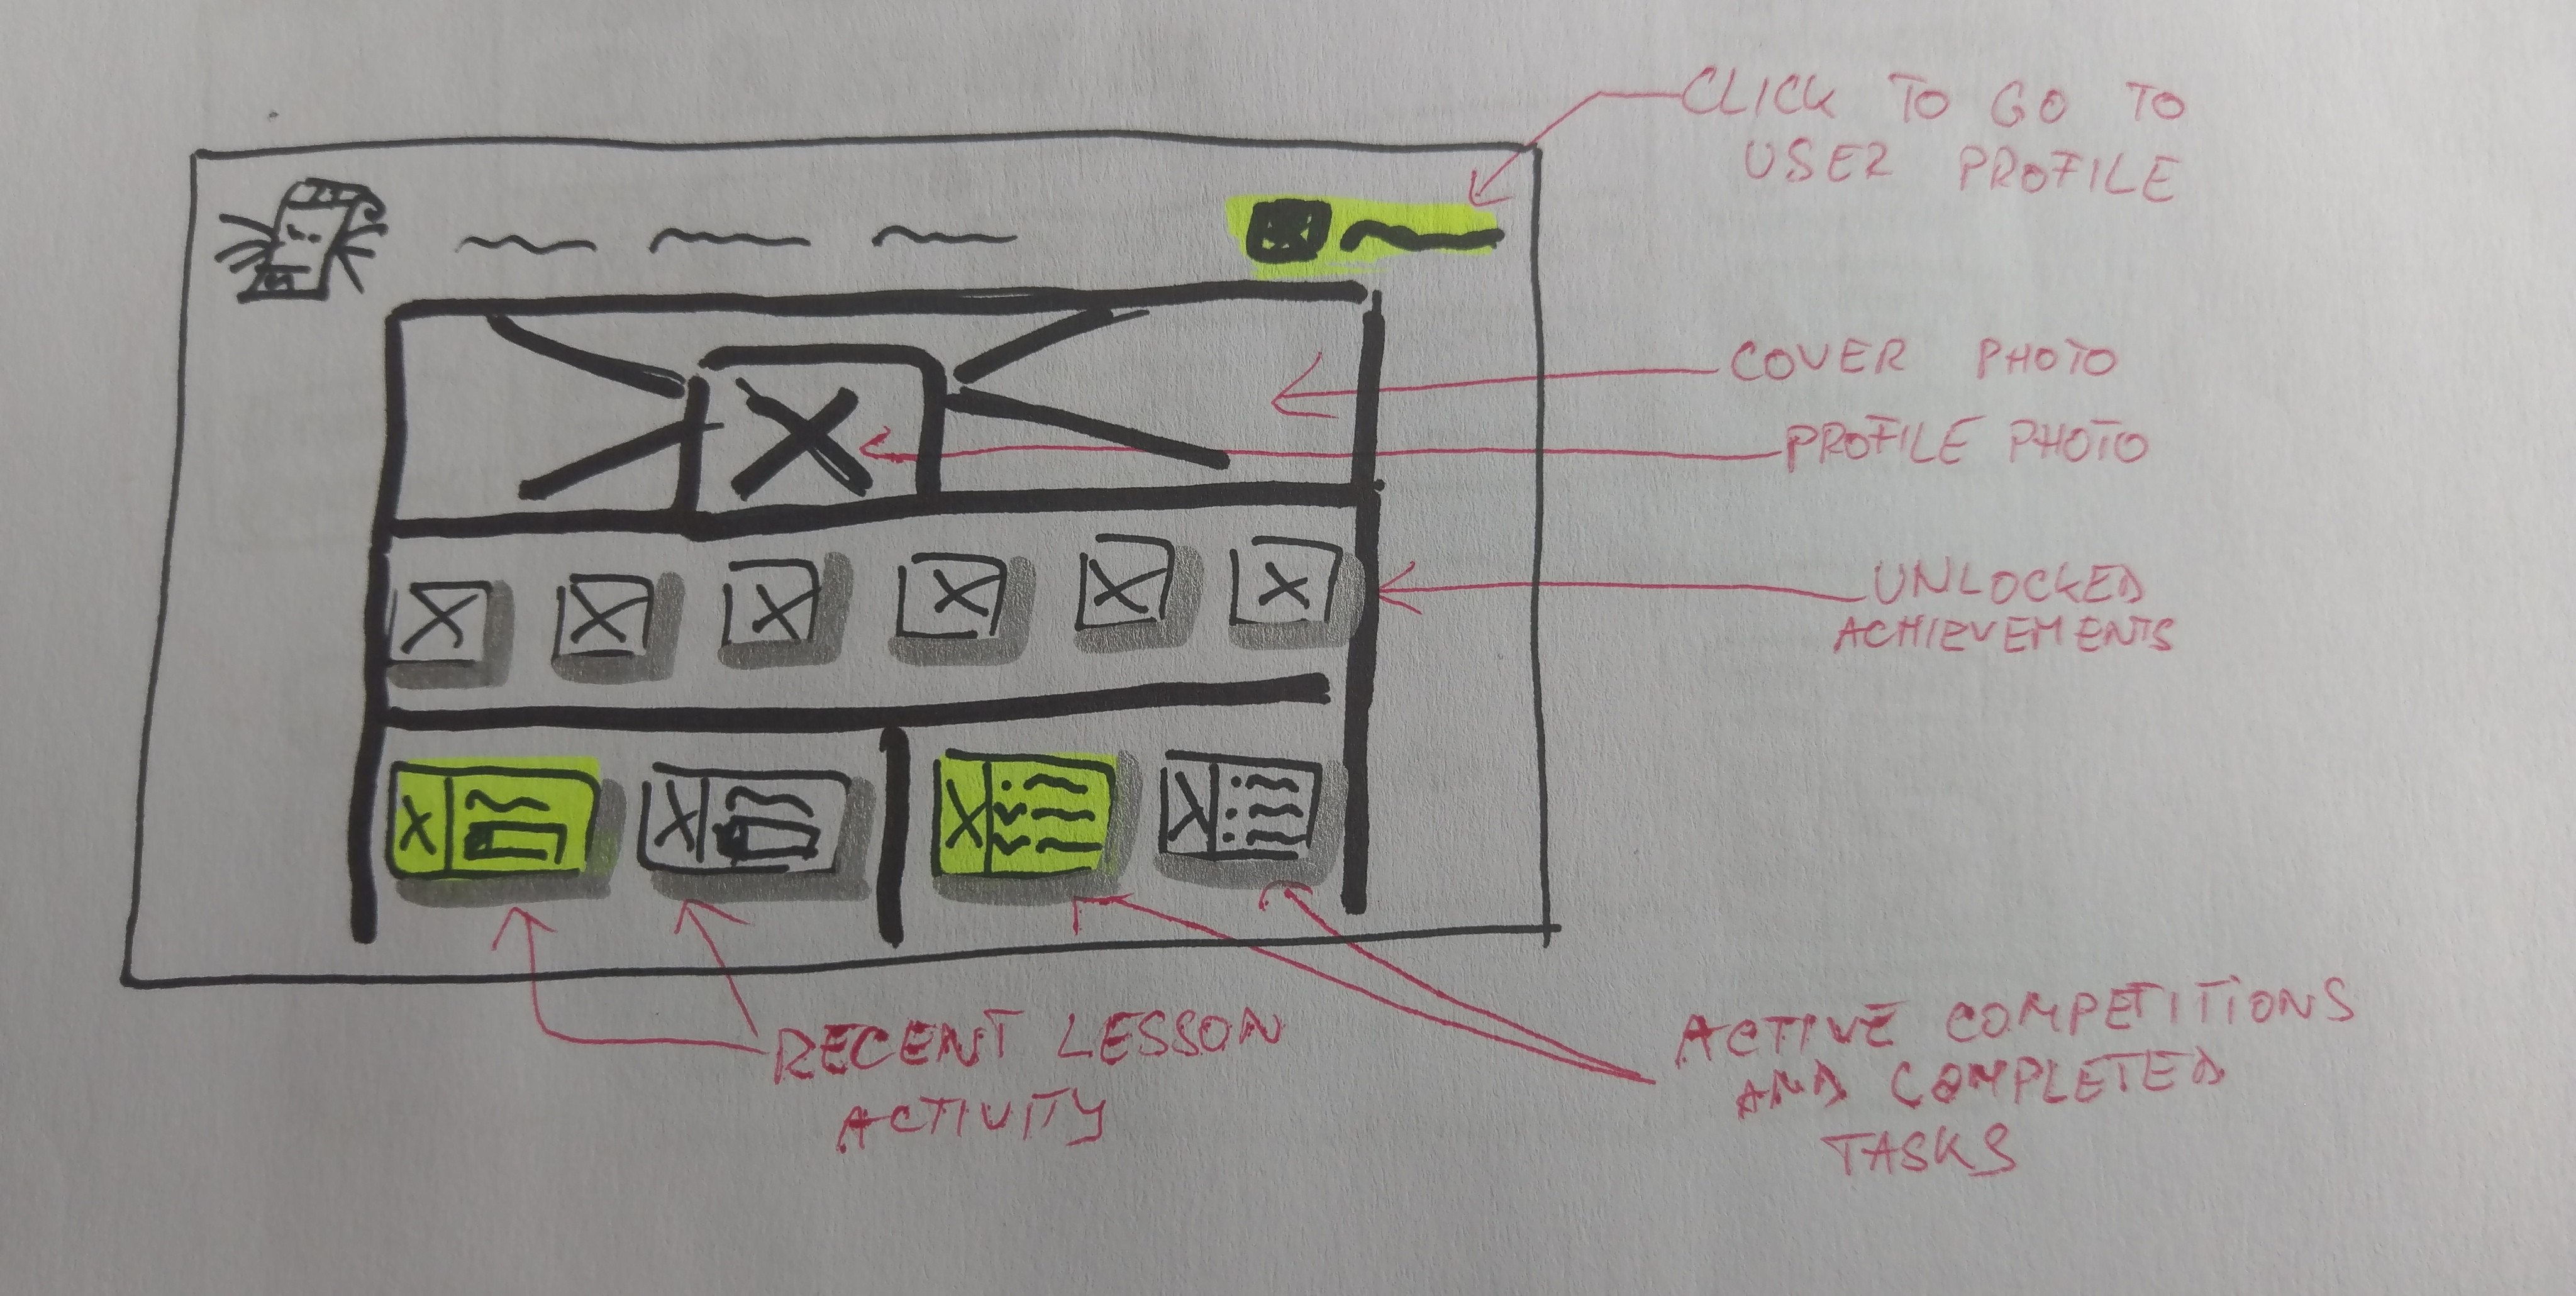 CLICK TO GO TO
USER PROFILE
COVER PHOTO
PROFILE PHOTO
UNLOCKED
ACHIEVEMENTS
RECENT LESSON
ACTIVITY
ACTIVE COMPETITIONS
AND COMPLETED
TASKS